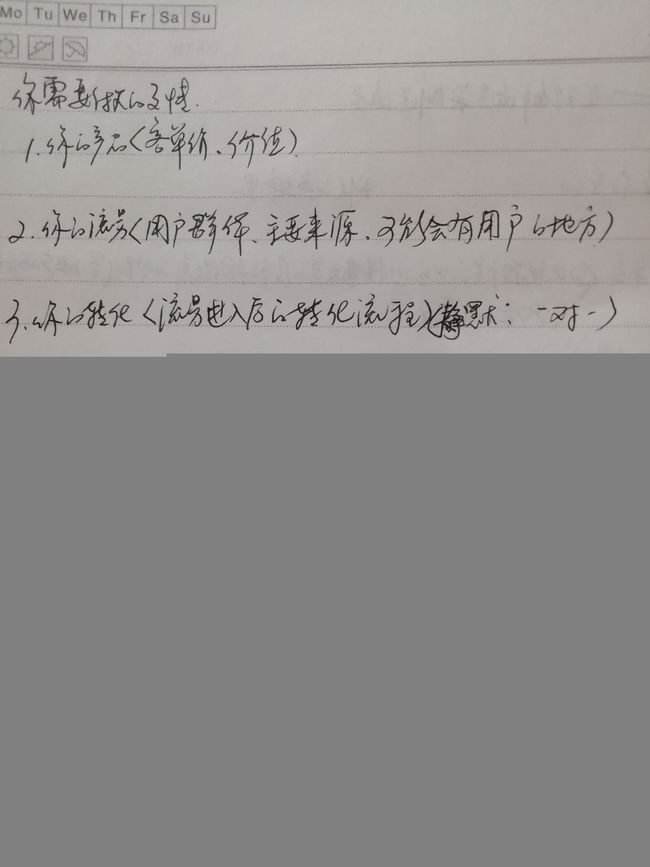 Mo Tu We Th Fr Sa Su
你需要做的支持.
1. 你的产品(客单价、价值)
2. 你的流量(用户群体、主要来源、可能会有用户的地方)
3. 你的转化(流量进入后的转化流程)(静默: 一对一)